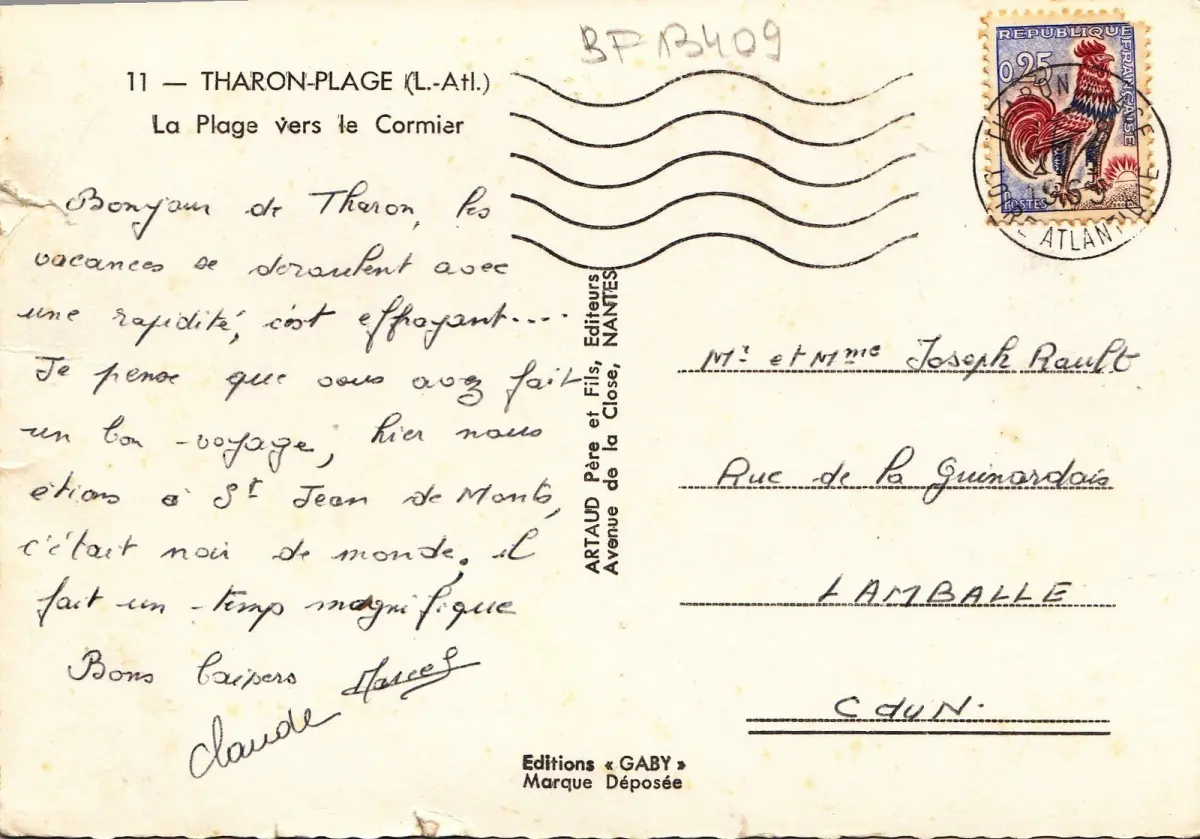 BF 13409
11 — THARON-PLAGE (L.-Atl.)
La Plage vers le Cormier
REPUBLIQUE FRANÇAISE
0,25
POSTES
1963
LOIRE ATLANTIQUE
Bonjour de Tharon, les
vacances se déroulent avec
une rapidité, c'est effrayant....
Je pense que vous avez fait
un bon voyage, hier nous
étions à St Jean de Monts,
c'était noir de monde, il
fait un temps magnifique
Bons baisers Marcel
Claude
ARTAUD Père et Fils, Editeurs
Avenue de la Close, NANTES
Mr et Mme Joseph Rault
Rue de la Guinardais
LAMBALLE
C du N.
Editions « GABY »
Marque Déposée